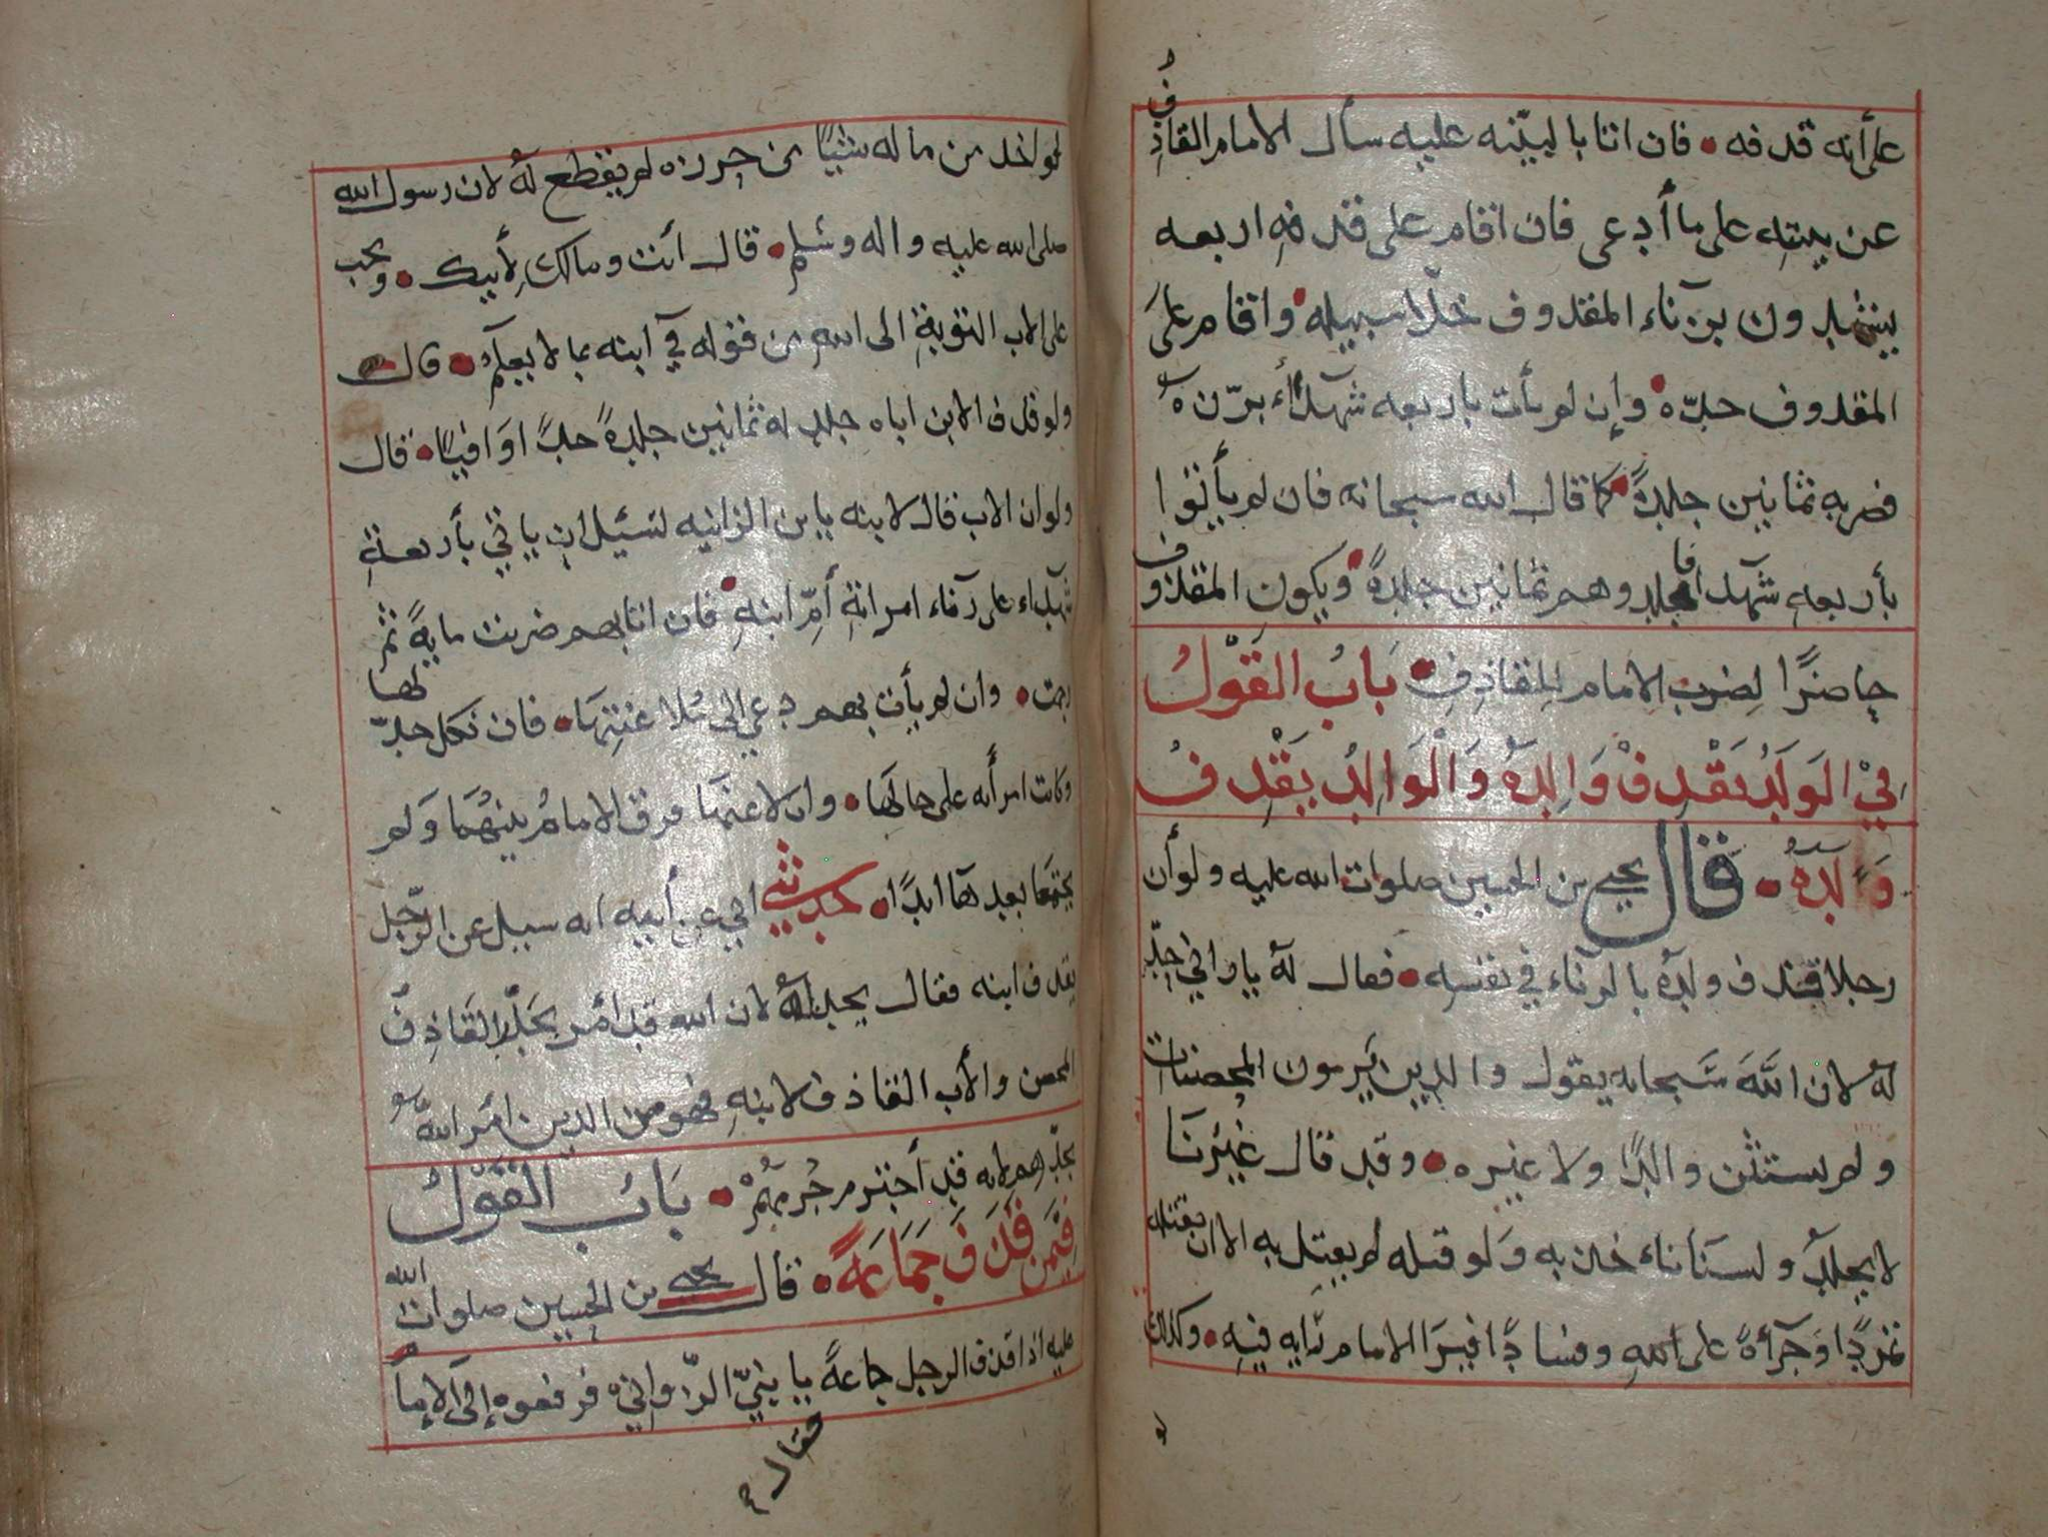 على أنه قدفه • فان اتا بالبيّنه عليه سأل الامام القاذِفُ
عن بينتِهِ على ما أدعى فان اقام على قذفهِ اربعه
يشهدون بزناء المقدوف خلّا سبيله • واقام على
المقدوف حدّه • وإن لم يأت باربعه شهدآء برّزه
فضربه ثمانين جلدةً • كما قال الله سبحانه فان لم يأتوا
بأربعهِ شهدا فاجلدوهم ثمانين جلدةً • ويكون المقذوف
حاضرًا لِضرب الامام للقاذِفِ • بَابُ القَوْلُ
فِي الوَلَدُ يَقْدِفْ وَالِدَهُ وَالْوَالِدُ يَقْدِفُ
وَلَدَهُ • قال يحيى بن الحسين صلوات الله عليه ولو أن
رجلا قذف ولدهُ بالزناء في نفسِهِ • فقال لهُ يا زاني حِدّ
لهُ لان اللَّهَ سَبحانه يقول والدين يَرمون المحصنات
ولم يستثن والدًا ولا غيره • وقد قال غيْرنَا
لا يجلد ولسنا ناءخذ به وَلو قتله لم يقتل به الا ان يقتله
تمردًا وَجرأةً على اللهِ وفسادًا فيرَا الامام رايه فيهِ • وكذلك
لو اخد من ماله شيئًا من حرزه لم يقطع لهُ لان رسول الله
صلى الله عليه واله وسلم • قال أنت ومالك لِأبيك • ويجب
على الاب التوبةِ الى اللهِ من قوله في آبنه بما لا يعلم • قال
ولو قدف الابن اباه جلد له ثمانين جلدةً حدًا وَافيًا • قال
ولو ان الاب قال لابنه يا بن الزانيه لسئيل ان ياتي بأربعةِ
شهداء على زناء امراتهِ أمِّ ابنهِ • فان اتا بهم ضربت مايةً ثم
رجمت • وان لم يأت بهم دعي إلى مُلاعنتِهَا • فان نكل حدّ لها
وكانت امرأته على حالَهَا • وان لاعنهَا فرق الامامُ بينهُمَا وَلم
يجتمعَا بعدهَا ابدًا • حدثني ابي عن أبيه انه سيل عن الرّجل
يقدف ابنه فقال يحد لهُ لان الله قد أمر بحَدِّ القَاذِفُ
المحصن والأب القاذف لابنهِ فهو من الدين امَر اللهُ
بحدّهم لانه قد أجترم جُرمهُمْ • بَابُ القَوْلُ
فِيْمَن قَذَفَ جَمَاعَةً • قال يحيى بن الحسين صلوات الله
عليه اذا قذف الرجل جماعةً يا بنيّ الزّواني فرفعوه إلى الإمام
فقال